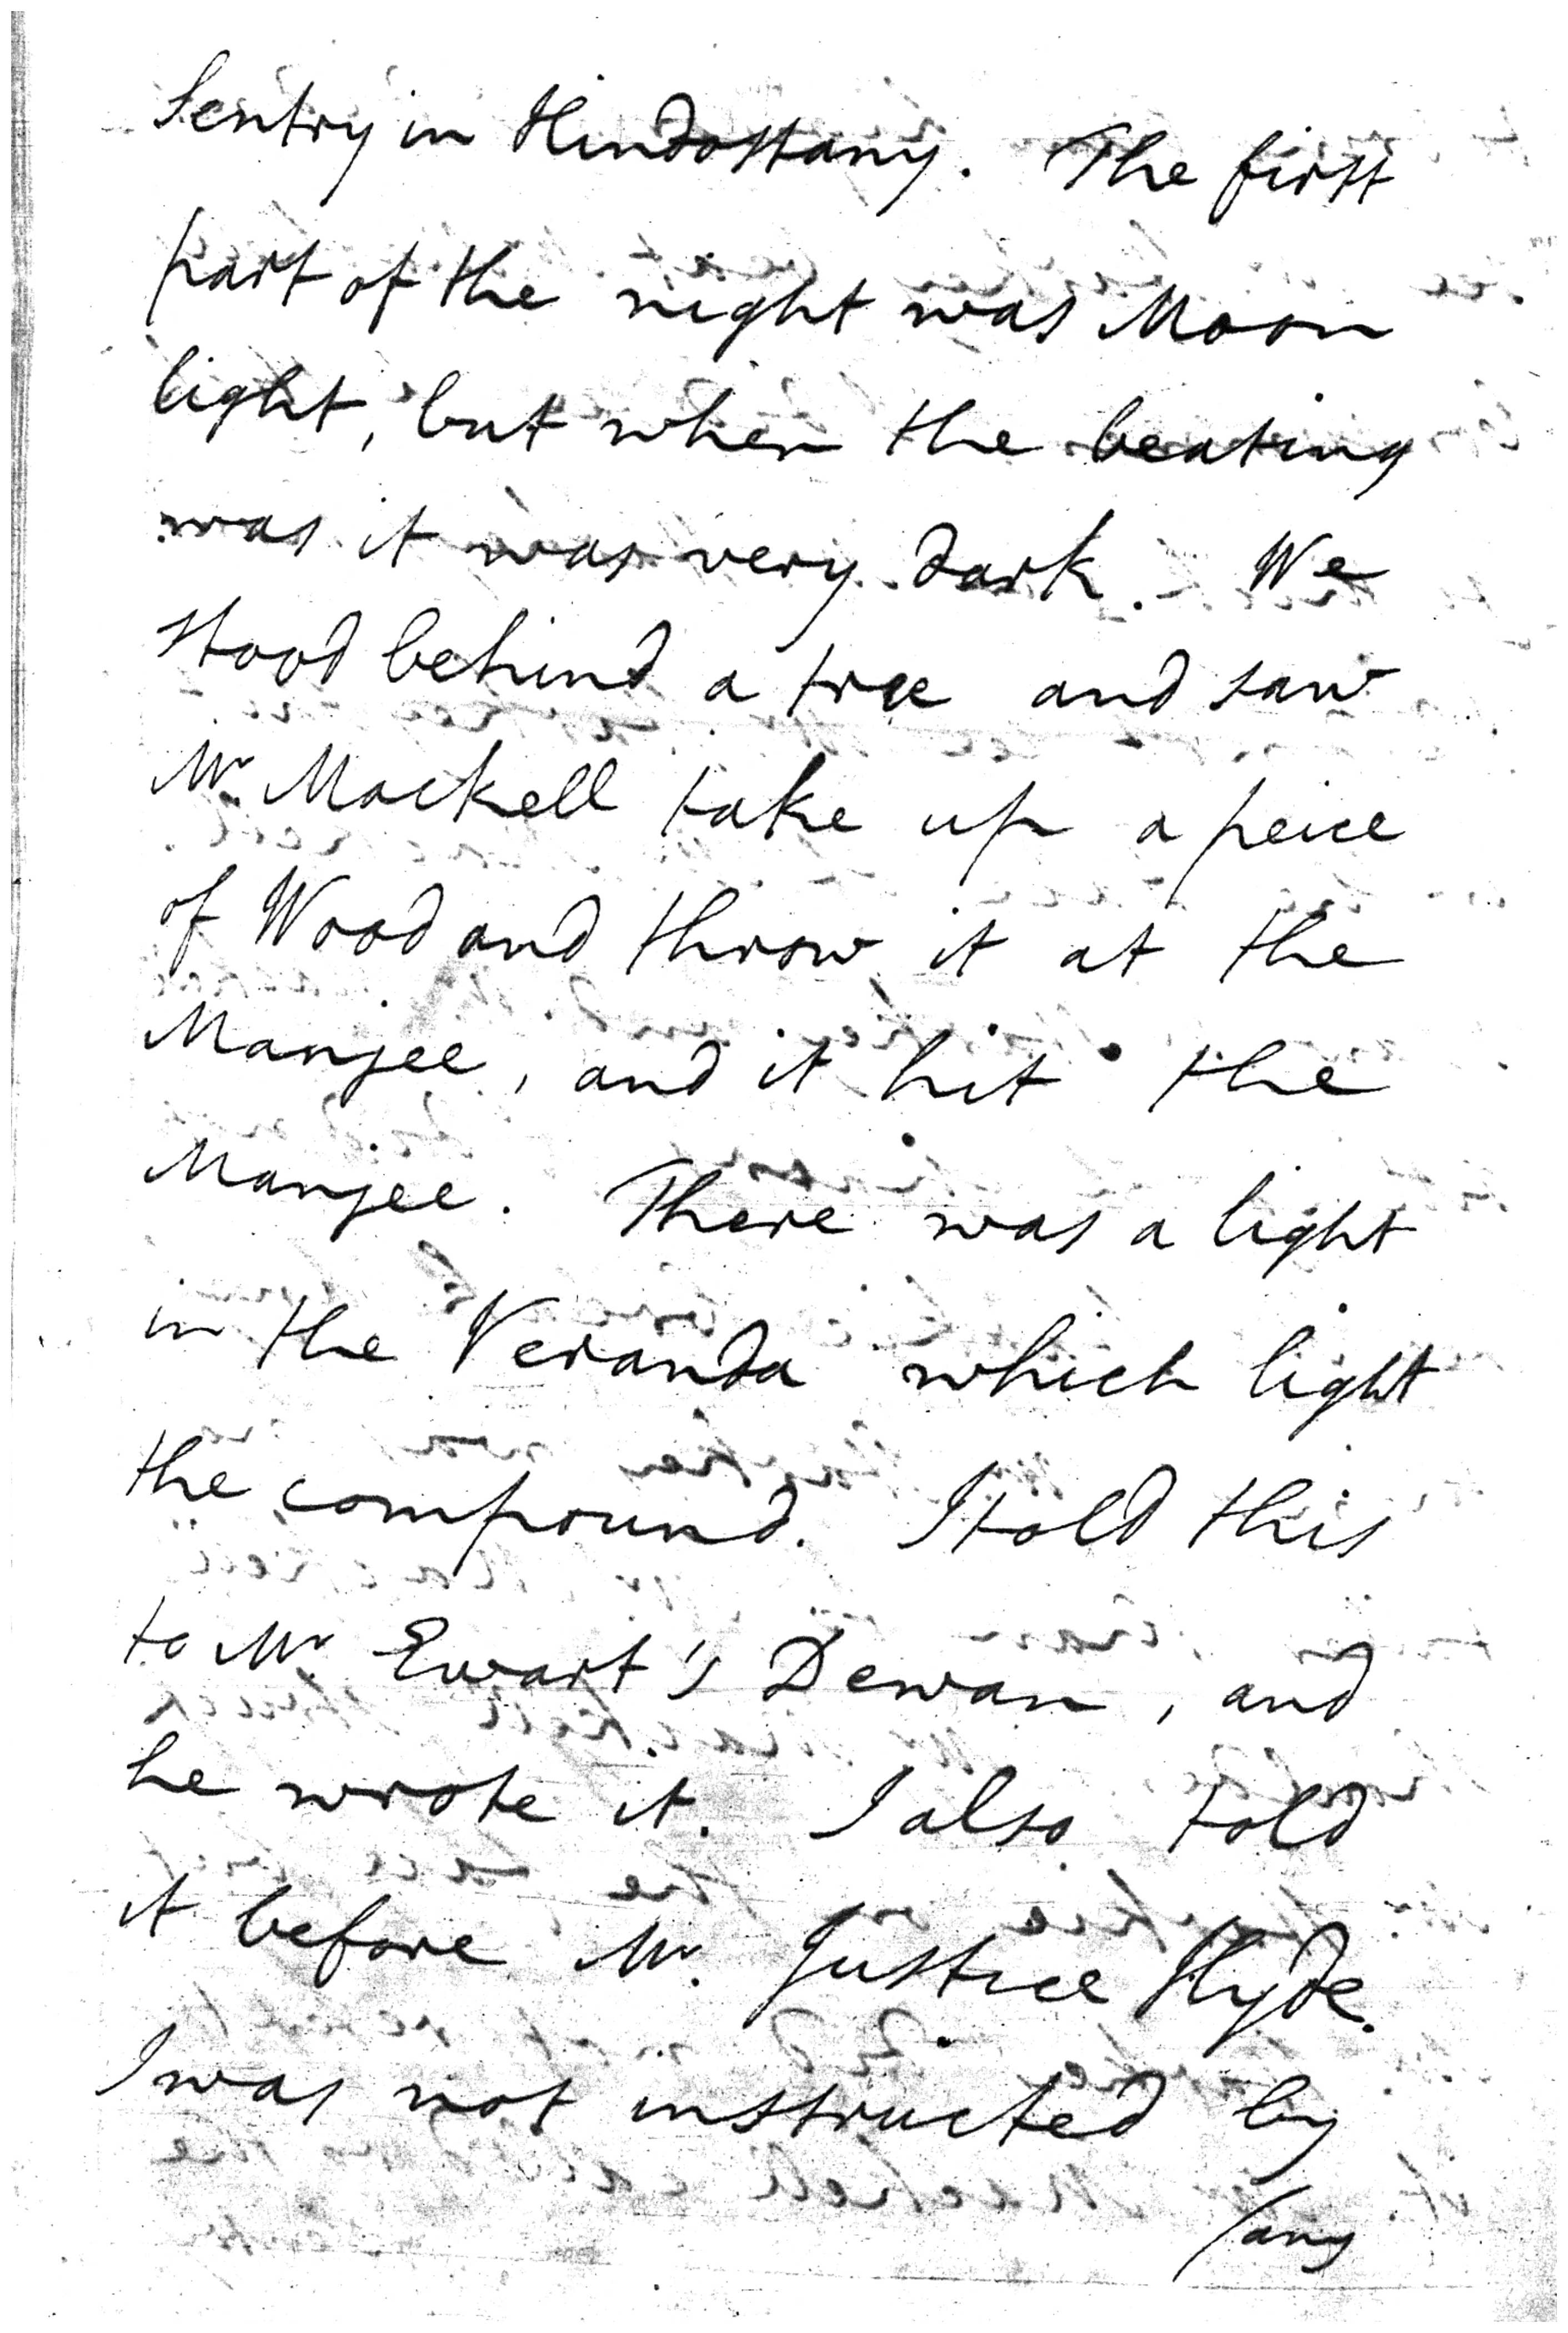 Sentry in Hindostany. The first
part of the night was Moon
light, but when the beating
was it was very dark. We
stood behind a tree and saw
Mr Mackell take up a peice
of Wood and throw it at the
Manjee, and it hit the
Manjee. There was a light
in the Veranda which light
the compound. I told this
to Mr Ewart's Dewan, and
he wrote it. I also told
it before Mr. Justice Hyde.
I was not instructed by
/any